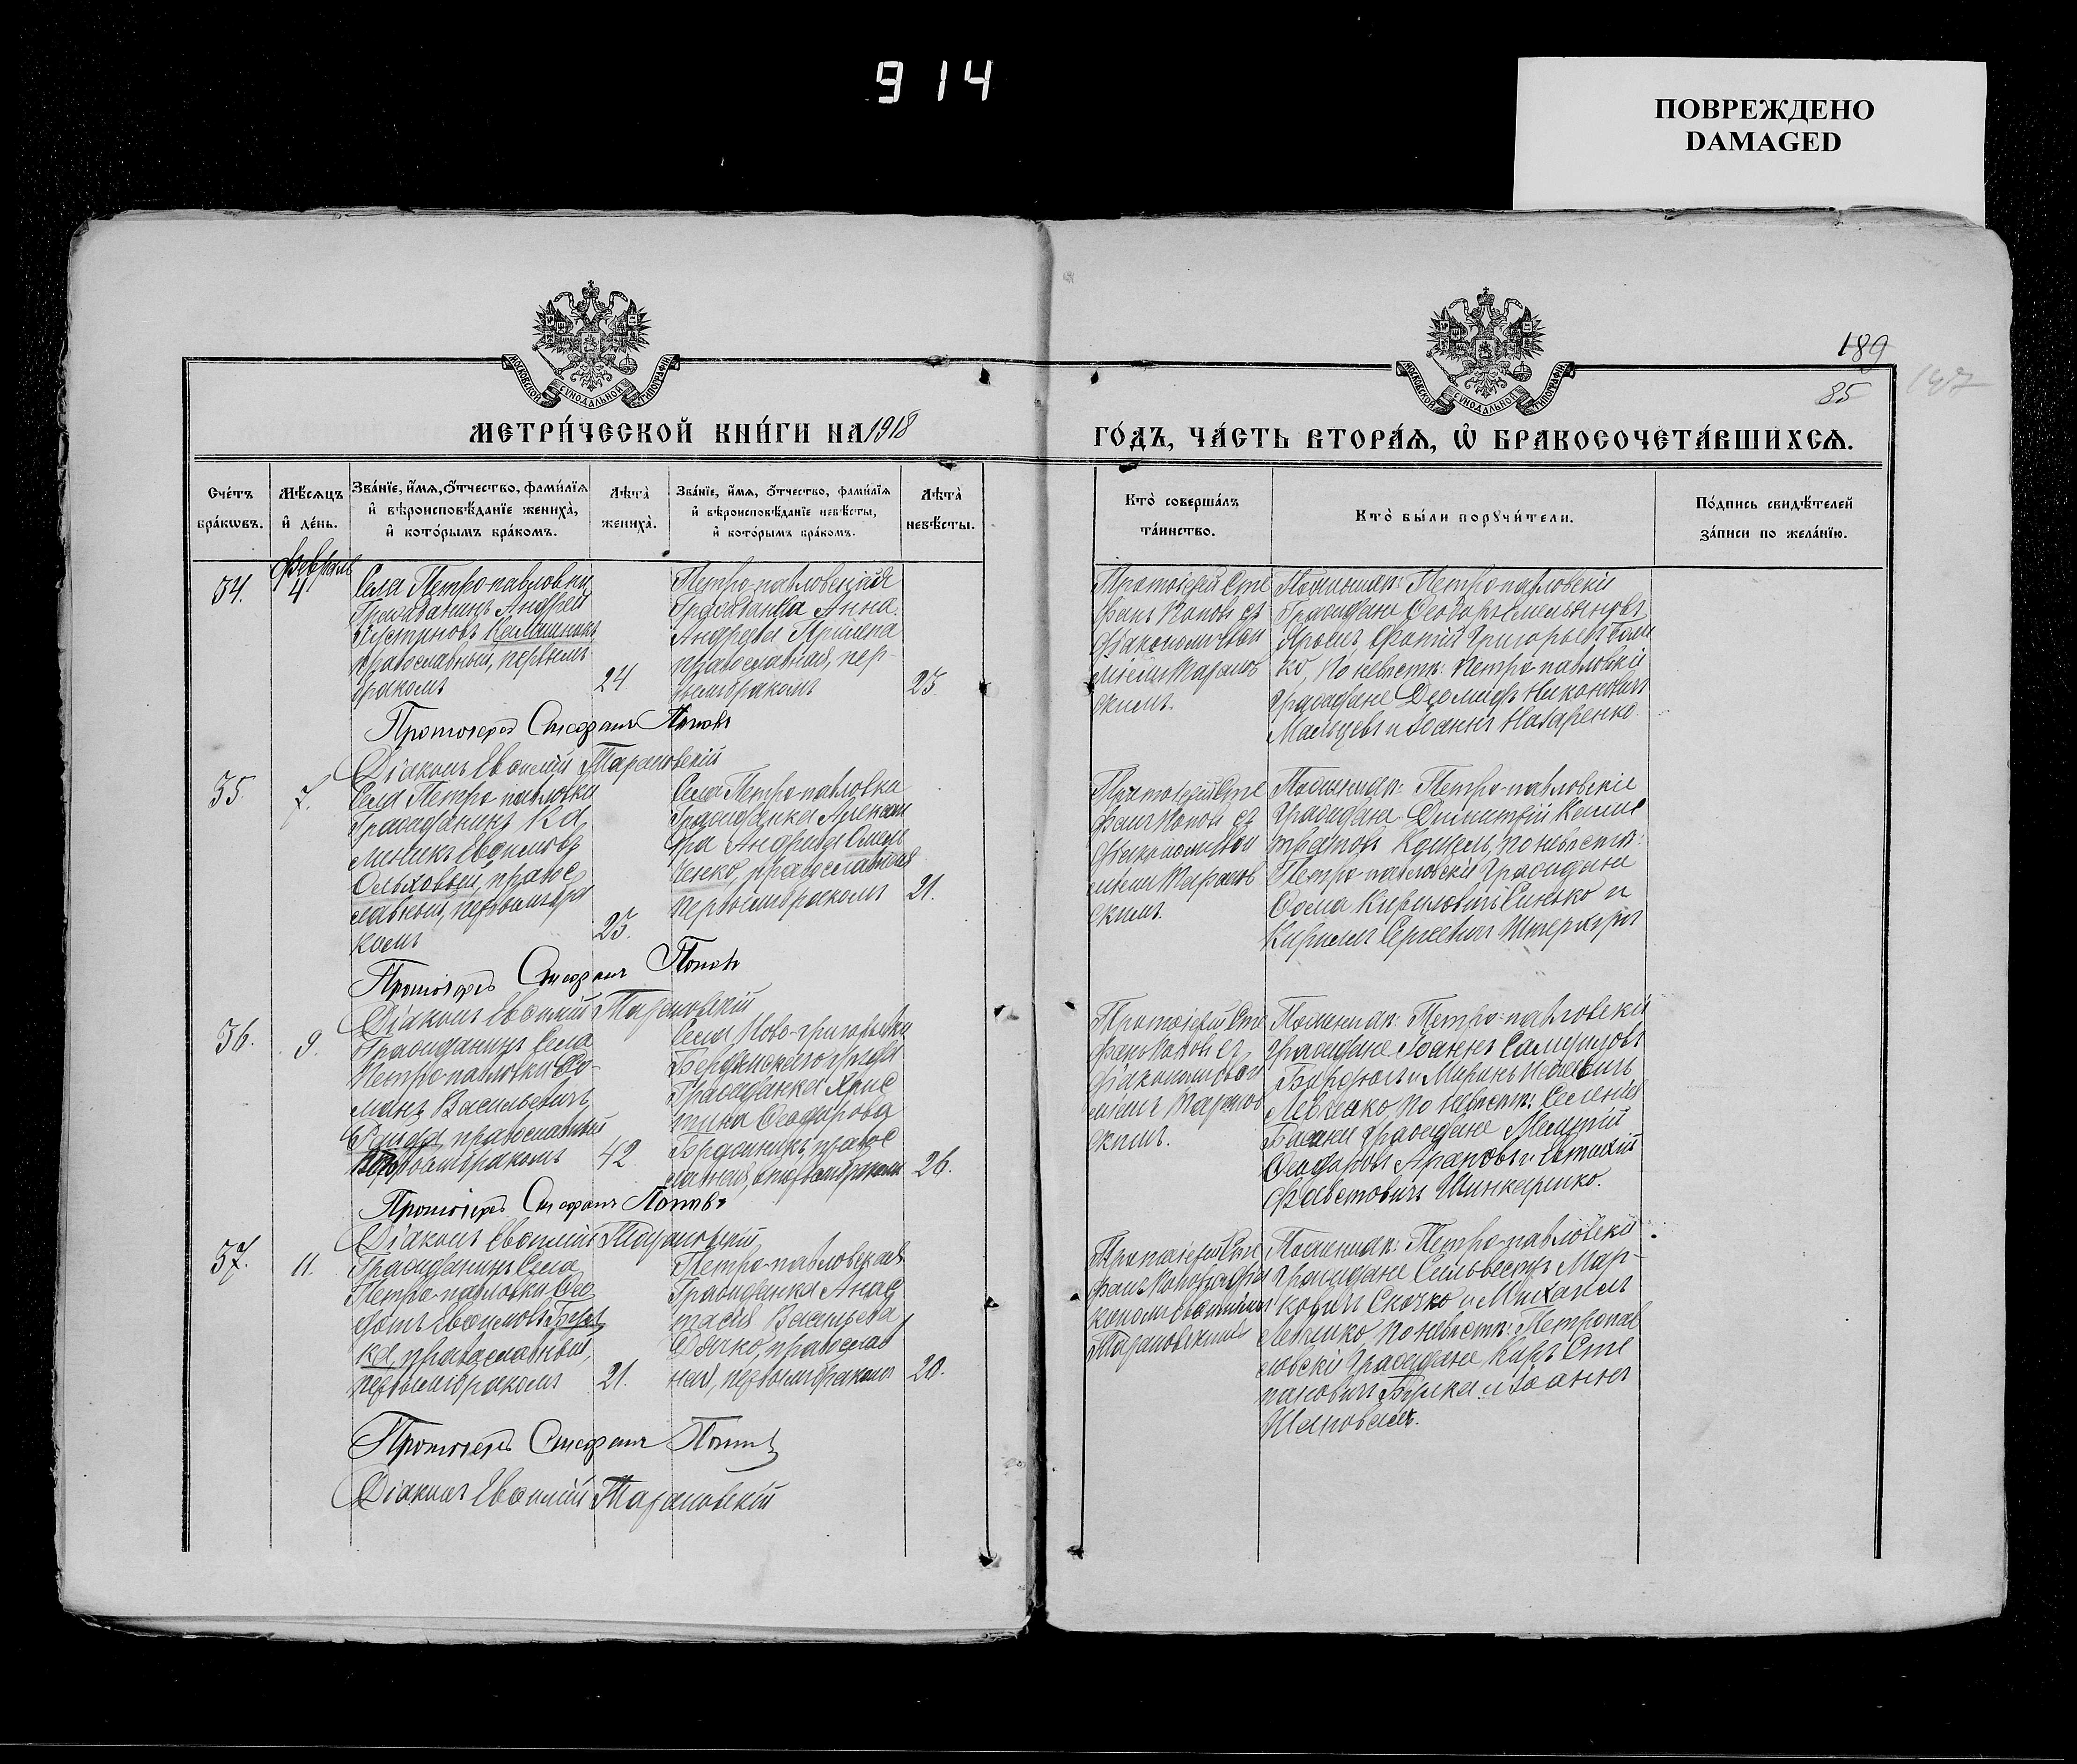 914
ПОВРЕЖДЕНО
DAMAGED
189
85
МОСКОВСКОЙ СѴНОДАЛЬНОЙ ТИПОГРАФІИ
МОСКОВСКОЙ СѴНОДАЛЬНОЙ ТИПОГРАФІИ
МЕТРИ́ЧЕСКОЙ КНИ́ГИ НА 1918
ГО́ДЪ, ЧА́СТЬ ВТОРА́Ѧ, Ѡ҆ БРАКОСОЧЕТА́ВШИХСѦ.
Сче́тъ бра́кѡвъ.
Мѣ́сѧцъ и҆ де́нь.
Зва́нїе, и҆́мѧ, ѻ҆́тчество, фами́лїѧ
и҆ вѣроисповѣ́данїе жениха̀,
и҆ кото́рымъ бра́комъ.
Лѣта̀ жениха̀.
Зва́нїе, и҆́мѧ, ѻ҆́тчество, фами́лїѧ
и҆ вѣроисповѣ́данїе невѣ́сты,
и҆ кото́рымъ бра́комъ.
Лѣта̀ невѣ́сты.
Кто̀ соверша́лъ
та́инство.
Кто̀ бы́ли порꙋчи́тели.
По́дпись свидѣ́телей
за́писи по жела́нїю.
Февраль
34.
4
Села Петро-павловки
Гражданинъ Андрей
Іустиновъ
православный, первымъ
бракомъ
24
Петро-павловская
Гражданка Анна
Андреева Пришепа
православная, пер-
вымъ бракомъ
23
Протоіерей Сте
фанъ Поповъ съ
діакономъ Евѳи
міемъ Таранов
скимъ.
По женихѣ: Петро-павловскіе
Граждане Ѳеодоръ Емельяновъ
Фотій Григорьевъ
ко, по невѣстѣ: Петро-павловскіе
граждане Діомидъ Никоновичъ
Мальцевъ и Іоаннъ Назаренко.
Протоіерей Стефанъ Поповъ
Діаконъ Евѳимій Тарановскій
35.
7.
Села Петро-павловки
Гражданинъ Ка
линикъ Евѳимовъ
Ольховый, правос
лавный, первымъ бра
комъ
23.
Села Петро-павловки
Гражданка Алексан
дра Андреева Омель
ченко, православная
первымъ бракомъ
21.
Протоіерей Сте
фанъ Поповъ съ
діакономъ Евѳи
міемъ Таранов
скимъ.
По женихѣ: Петро-павловскіе
Граждане Димитрій
по невѣстѣ:
Петро-павловскіе Граждане
Ѳома Кириловичъ Синько и
Кириллъ Сергѣевичъ
Протоіерей Стефанъ Поповъ
Діаконъ Евѳимій Тарановскій
36.
9.
Гражданинъ Села
Петро-павловки Ро-
манъ Васильевичъ
православный
вторымъ бракомъ
42
Села Ново-григорьевки
Бердянскаго уѣзда
Гражданка Хрис
тина Ѳеодорова
правос
лавная, вторымъ бракомъ
26.
Протоіерей Сте
фанъ Поповъ съ
діакономъ Евѳи
міемъ Таранов
скимъ.
По женихѣ: Петро-павловскіе
граждане Іоаннъ
и Миронъ
Левченко по невѣстѣ: Селенія
граждане Мелитій
Ѳеодоровъ Араповъ и Евтихій
Фавстовичъ Шинкаренко.
Протоіерей Стефанъ Поповъ
Діаконъ Евѳимій Тарановскій
37.
11.
Гражданинъ Села
Петро-павловки Ѳе
дотъ Евѳимовъ
ка, православный,
первымъ бракомъ
21.
Петро-павловская
Гражданка Анас
тасія Васильева
Дьячко, православ
ная, первымъ бракомъ
20.
Протоіерей Сте
фанъ Поповъ съ діа
кономъ Евѳиміемъ
Тарановскимъ
По женихѣ: Петро-павловскіе
Граждане Сильвестръ Мар-
ковичъ Скачко и Михаилъ
Левченко по невѣстѣ: Петропав
ловскіе Граждане Киръ Сте
пановичъ Бурка и Іоаннъ
Шаповалъ.
Протоіерей Стефанъ Поповъ
Діаконъ Евѳимій Тарановскій